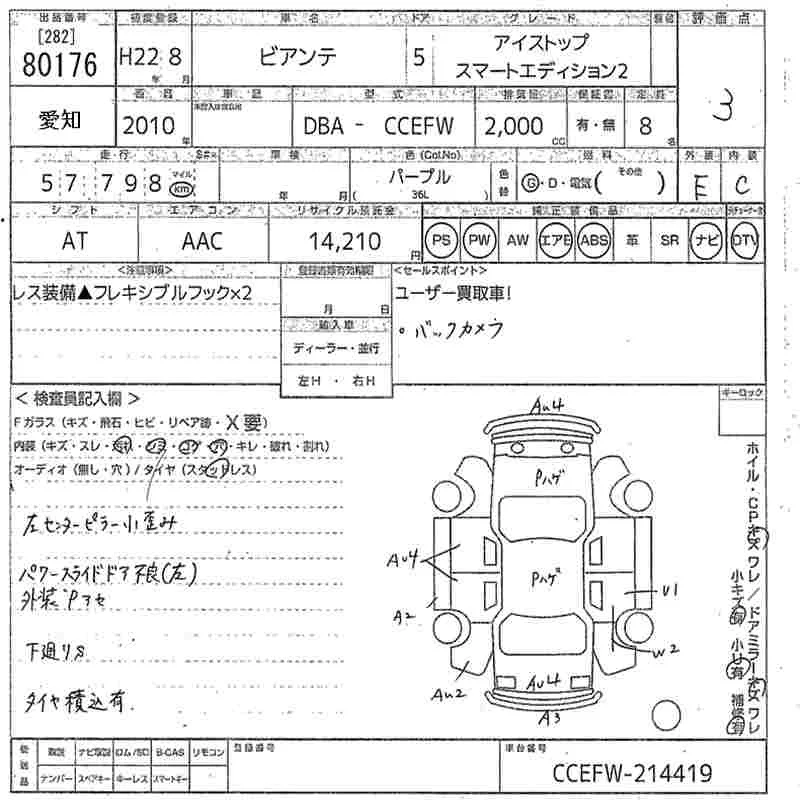 出品番号 初度登録 車名 ドア グレード 評価点
[282]
80176 H22 8 年 月 ビアンテ 5 アイストップ
スマートエディション2
3
愛知 車歴 車証 型式 排気量 保証書 定員
2010 年 DBA - CCEFW 2,000 CC 有・無 8 名
走行 車検 色(Col.No) 燃料 外装 内装
57 798 マイル km 年 月 パープル
( 36L ) 色替 G・D・電気( その他 ) E C
シフト エアコン リサイクル預託金 純正装備品
AT AAC 14,210 円 PS PW AW エアB ABS 革 SR ナビ DTV
<注意事項> 登録遅延有効期限 <セールスポイント>
レス装備▲フレキシブルフック×2 ユーザー買取車!
月 日
輸入車 。バックカメラ
ディーラー・並行
左H ・ 右H
< 検査員記入欄 > キーロック
Fガラス(キズ・飛石・ヒビ・リペア跡・X要)
内装(キズ・スレ・汚れ・シミ・コゲ・穴・キレ・破れ・割れ)
オーディオ(無し・穴)/タイヤ(スタッドレス)
左センターピラー小歪み
パワースライドドア不良(左)
外装Pアセ
下廻りS
タイヤ積込有
AU4
Pハゲ
AU4
Pハゲ
U1
A2
W2
AU2
AU4
A3
ホイル・CPキズ ワレ / ドアミラーキズ ワレ
小キズ有 小U有 補修有
後送品 取説 ナビ取説 ロム/SD B-CAS リモコン 登録番号 車台番号
ナンバー スペアキー キーレス スマートキー
CCEFW-214419